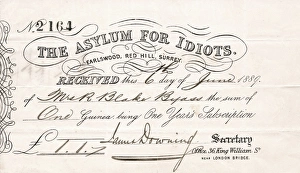 N. 2164
THE ASYLUM FOR IDIOTS.
EARLSWOOD, RED HILL, SURREY.
RECEIVED this 6th day of June 1889.
of Mrs R Blake Byass the sum of
One Guinea being One Year's Subscription
£1.1.- James Downing Secretary
Office 36 King William St
NEAR LONDON BRIDGE.